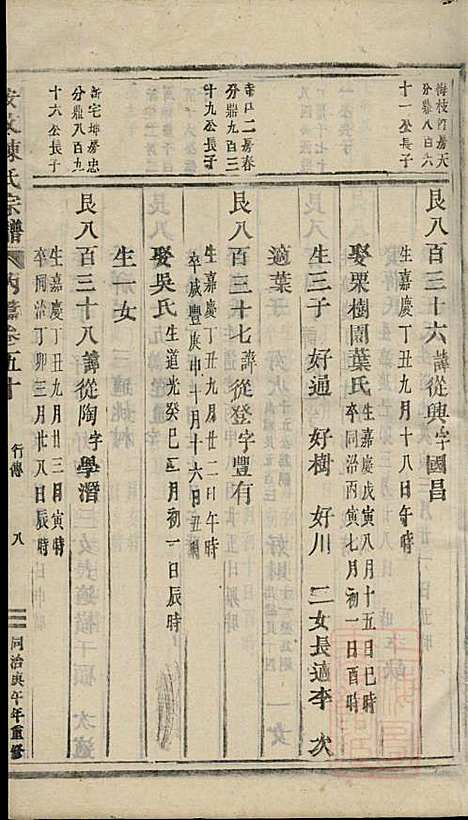 梅枝門房天
分鼎八百六
十一公長子
良八百三十六諱從興字國昌
生嘉慶丁丑九月十八日午時
娶栗樹園葉氏生嘉慶戊寅八月十五日巳時
卒同治丙寅七月初一日酉時
生三子 好通 好樹 好川 二女長適李 次
適葉
二房春
分鼎九百三
十九公長子
良八百三十七諱從登字豐有
生嘉慶丁丑九月廿二日午時
卒咸豐庚申十月十六日丑時
娶吳氏生道光癸巳二月初一日辰時
生一女
新宅坤房忠
分鼎八百九
十六公長子
良八百三十八諱從陶字學潛
生嘉慶丁丑九月廿三日寅時
卒同治丁卯三月廿八日辰時
安文陳氏宗譜 卷五十 行傳 八 同治庚午年重修